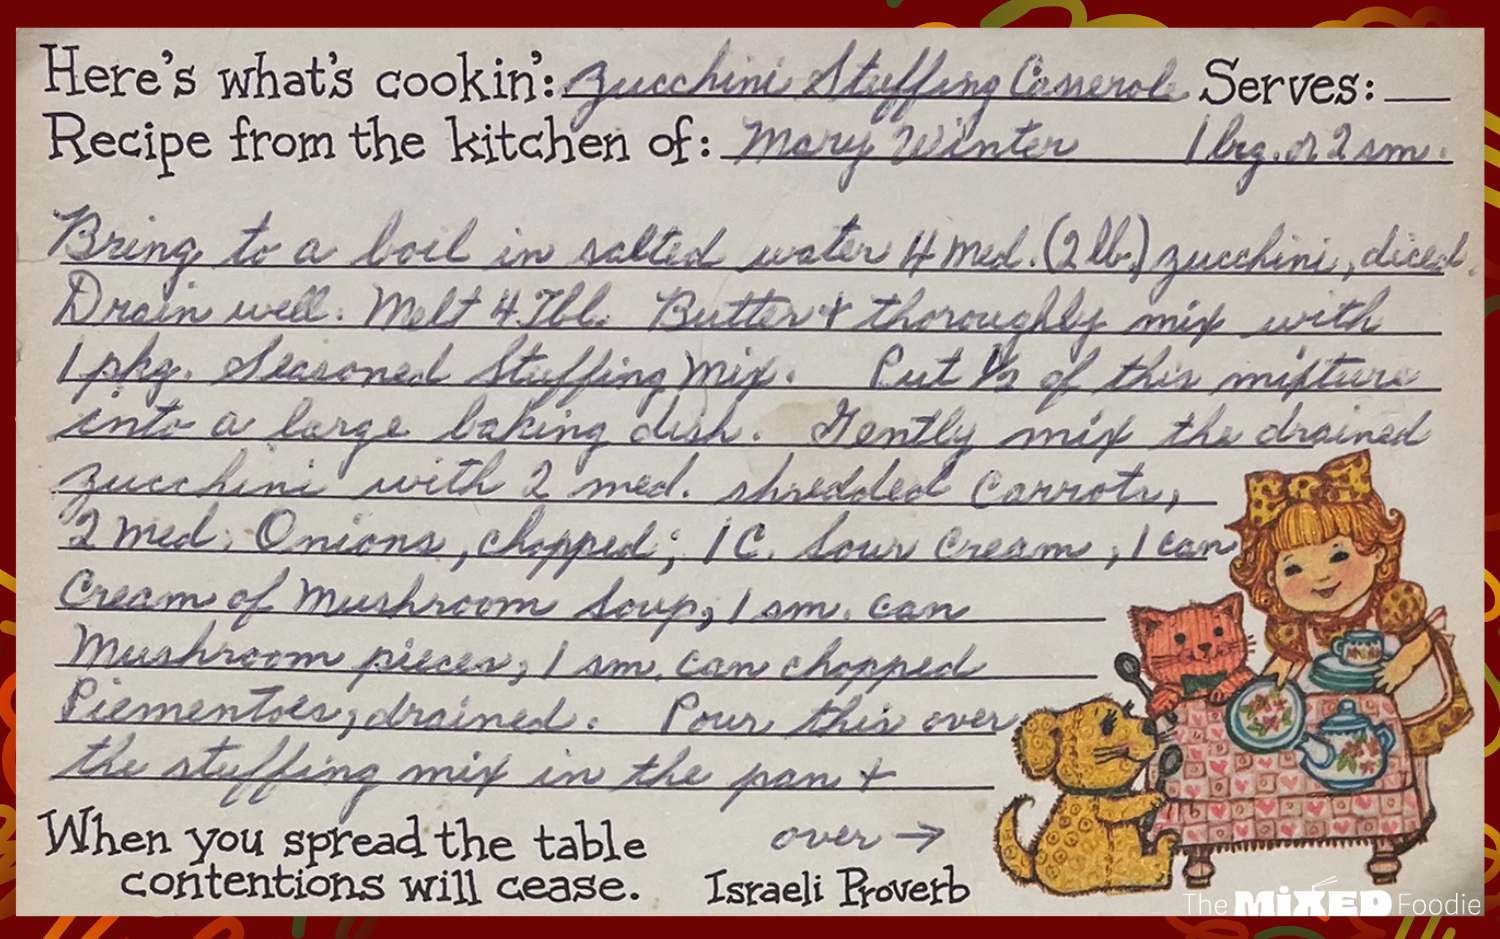 Here's what's cookin': Zucchini Stuffing Casserole Serves:
Recipe from the kitchen of: Mary Winter 1 lrg. or 2 sm.
Bring to a boil in salted water 4 med. (2 lb.) zucchini, diced.
Drain well. Melt 4 Tbl. Butter & thoroughly mix with
1 pkg. Seasoned Stuffing Mix. Put ½ of this mixture
into a large baking dish. Gently mix the drained
zucchini with 2 med. shredded Carrots,
2 med. Onions, chopped; 1 C. Sour Cream, 1 can
Cream of Mushroom Soup, 1 sm. can
Mushroom pieces, 1 sm. can chopped
Piementoes, drained. Pour this over
the stuffing mix in the pan &
over →
When you spread the table
contentions will cease. Israeli Proverb
The MiXED Foodie